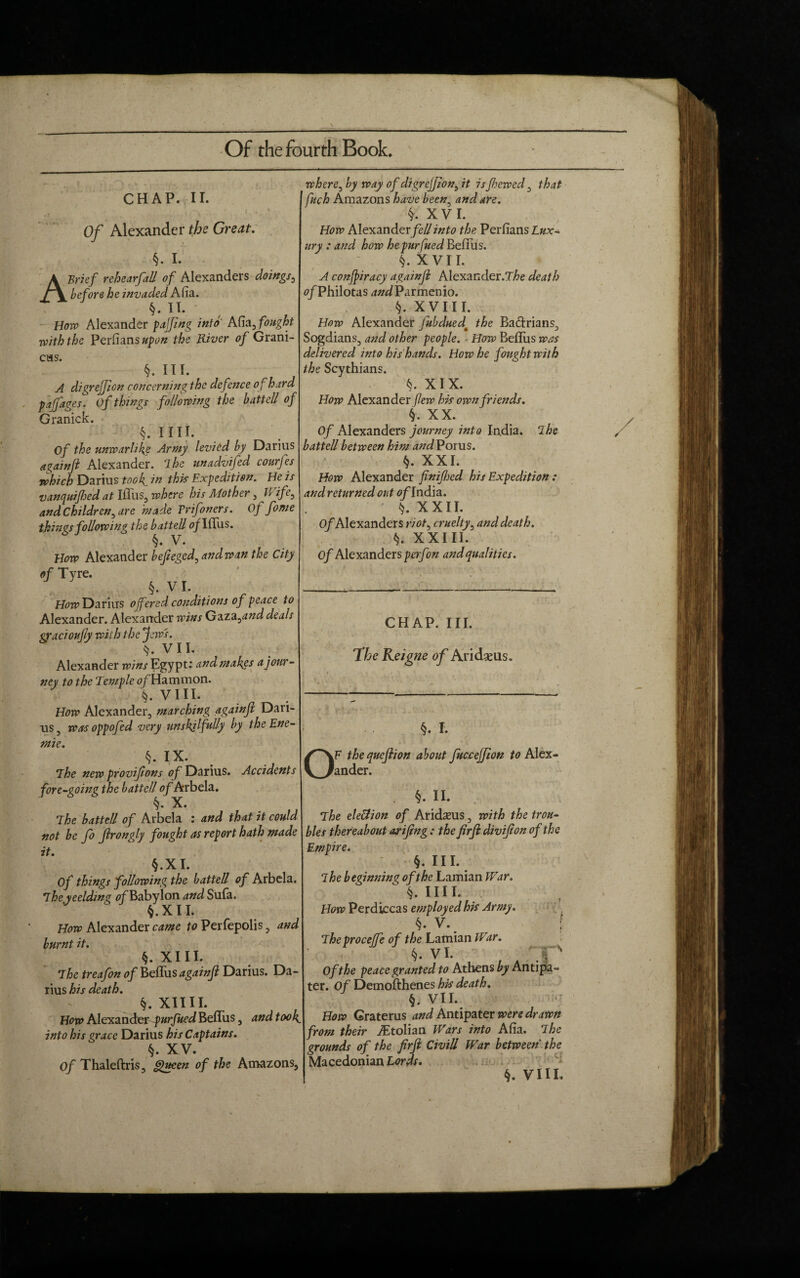 Of the fourth Book.
CHAP. II.
Of Alexander the Great.
§. I.
A Brief rehearſall of Alexanders doings,
before he invaded Aſia.
§. II.
How Alexander paſſing into Aſia, fought
with the Perſians upon the River of Grani-
cus.
§. III.
A digreſſion concerning the defence of hard
paſſages. Of things following the battell of
Granick.
§. IIII.
Of the unwarlike Army levied by Darius
againſt Alexander. The unadviſed courſes
which Darius took in this Expedition. He is
vanquiſhed at Iſſus, where his Mother, Wife,
and Children, are made Priſoners. Of ſome
things following the battell of Iſſus.
§. V.
How Alexander beſieged, and wan the City
of Tyre.
§. VI.
How Darius offered conditions of peace to
Alexander. Alexander wins Gaza, and deals
graciouſly with the Jews.
§. VII.
Alexander wins Egypt: and makes a jour-
ney to the Temple of Hammon.
§. VIII.
How Alexander, marching againſt Dari-
us, was oppoſed very unskilfully by the Ene-
mie.
§. IX.
The new proviſions of Darius. Accidents
fore-going the battell of Arbela.
§. X.
The battell of Arbela : and that it could
not be ſo ſtrongly fought as report hath made
it.
§. XI.
Of things following the battell of Arbela.
The yeelding of Babylon and Suſa.
§. XII.
How Alexander came to Perſepolis, and
burnt it.
§. XIII.
The treaſon of Beſſus againſt Darius. Da-
rius his death.
§. XIIII.
How Alexander purſued Beſſus, and took
into his grace Darius his Captains.
§. XV.
Of Thaleſtris, Queen of the Amazons,
where, by way of digreſſion, it is ſhewed, that
ſuch Amazons have been, and are.
§. XVI.
How Alexander fell into the Perſians Lux-
ury : and how he purſued Beſſus.
§. XVII.
A conſpiracy againſt Alexander. The death
of Philotas and Parmenio.
§. XVIII.
How Alexander ſubdued the Bactrians,
Sogdians, and other people. How Beſſus was
delivered into his hands. How he fought with
the Scythians.
§. XIX.
How Alexander ſlew his own friends.
§. XX.
Of Alexanders journey into India. The
battell between him and Porus.
§. XXI.
How Alexander finiſhed his Expedition :
and returned out of India.
§. XXII.
Of Alexanders riot, cruelty, and death.
§. XXIII.
Of Alexanders perſon and qualities.
CHAP. III.
The Reigne of Aridæus.
§. I.
OF the queſtion about ſucceſſion to Alex-
ander.
§. II.
The election of Aridæus, with the trou-
bles thereabout ariſing : the firſt diviſion of the
Empire.
§. III.
The beginning of the Lamian War.
§. IIII.
How Perdiccas employed his Army.
§. V.
The proceſſe of the Lamian War.
§. VI.
Of the peace granted to Athens by Antipa-
ter. Of Demoſthenes his death.
§. VII.
How Craterus and Antipater were drawn
from their Ætolian Wars into Aſia. The
grounds of the firſt Civill War between the
Macedonian Lords.
§. VIII.